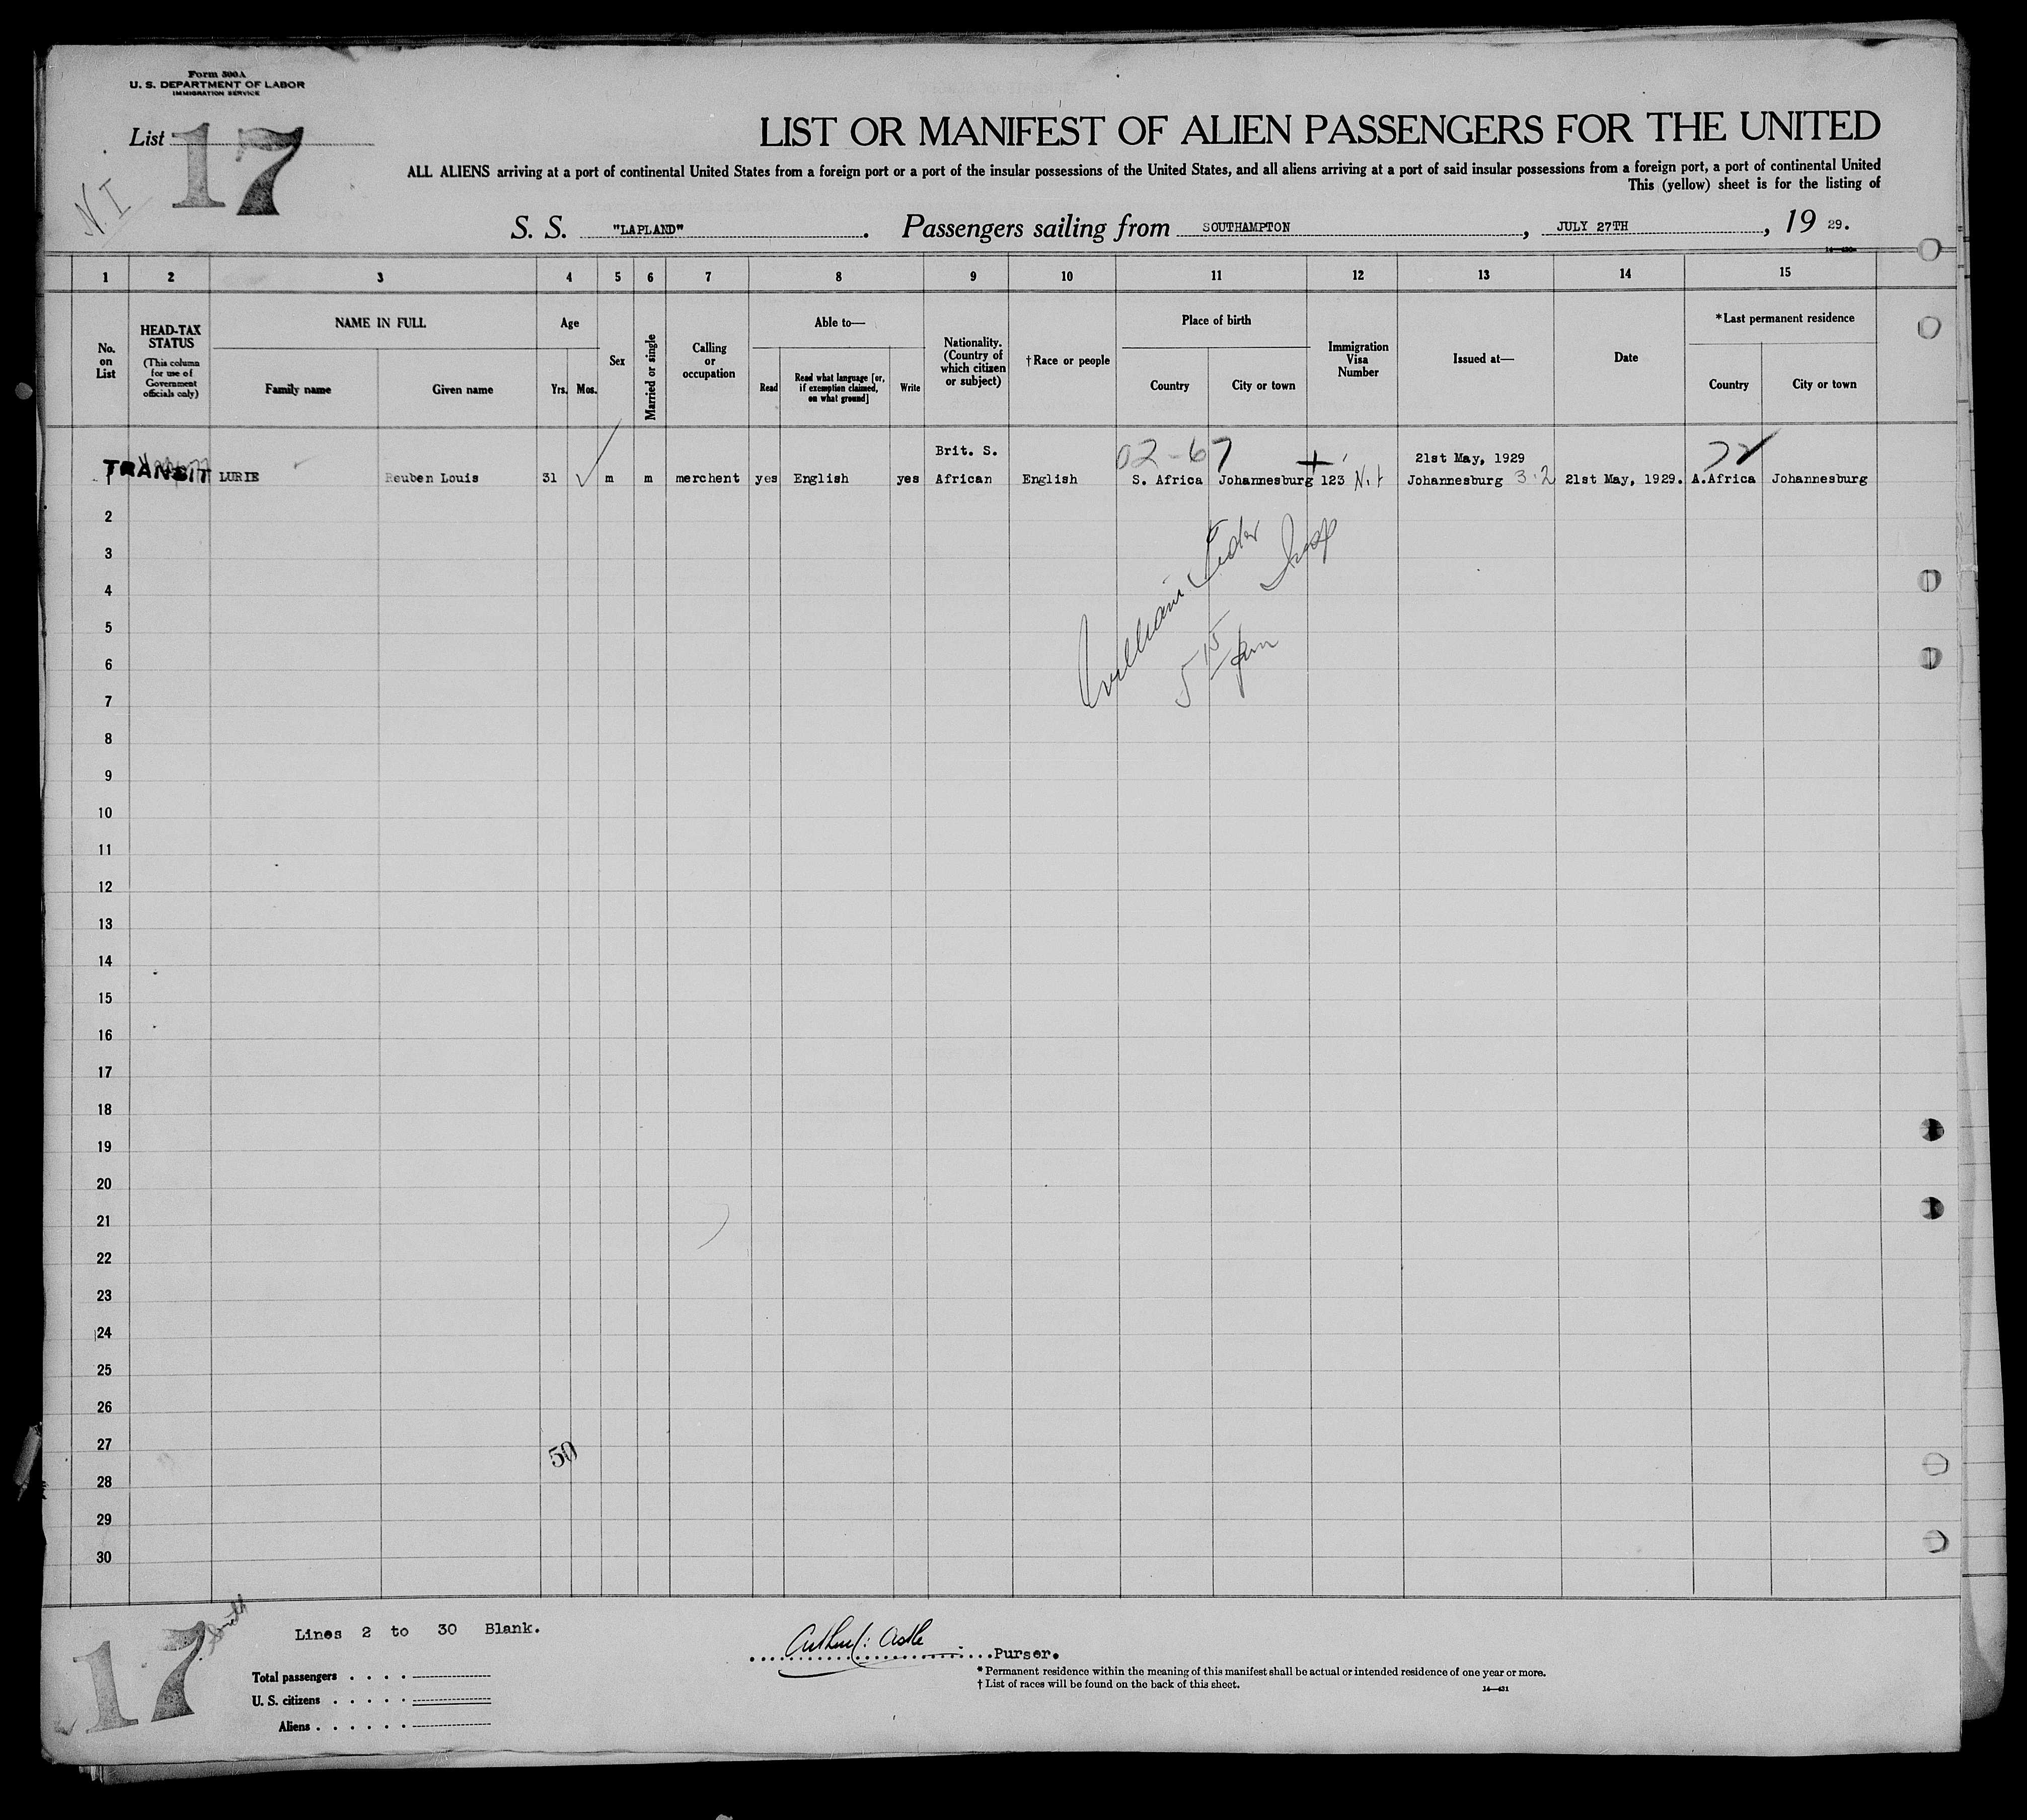 Form 500A
U. S. DEPARTMENT OF LABOR
IMMIGRATION SERVICE
List 17
N. I
LIST OR MANIFEST OF ALIEN PASSENGERS FOR THE UNITED
ALL ALIENS arriving at a port of continental United States from a foreign port or a port of the insular possessions of the United States, and all aliens arriving at a port of said insular possessions from a foreign port, a port of continental United
This (yellow) sheet is for the listing of
S. S. "LAPLAND". Passengers sailing from SOUTHAMPTON, JULY 27TH, 19 29.
1 2 3 4 5 6 7 8 9 10 11 12 13 14 15
No. on List
HEAD-TAX STATUS
(This column for use of Government officials only)
NAME IN FULL
Family name Given name
Age
Yrs. Mos.
Sex
Married or single
Calling or occupation
Able to—
Read Read what language [or, if exemption claimed, on what ground] Write
Nationality. (Country of which citizen or subject)
†Race or people
Place of birth
Country City or town
Immigration Visa Number
Issued at—
Date
*Last permanent residence
Country City or town
Brit. S. 02-67 21st May, 1929 72
1 TRANSIT LURIE Reuben Louis 31 m m merchent yes English yes African English S. Africa Johannesburg 123 N.I Johannesburg 3.2 21st May, 1929. A.Africa Johannesburg
2
3
4
5
6
7
William Insp
5 15 pm
8
9
10
11
12
13
14
15
16
17
18
19
20
21
22
23
24
25
26
27
50
28
29
30
17
Lines 2 to 30 Blank.
Purser.
Total passengers
U. S. citizens
Aliens
* Permanent residence within the meaning of this manifest shall be actual or intended residence of one year or more.
† List of races will be found on the back of this sheet.
14—431